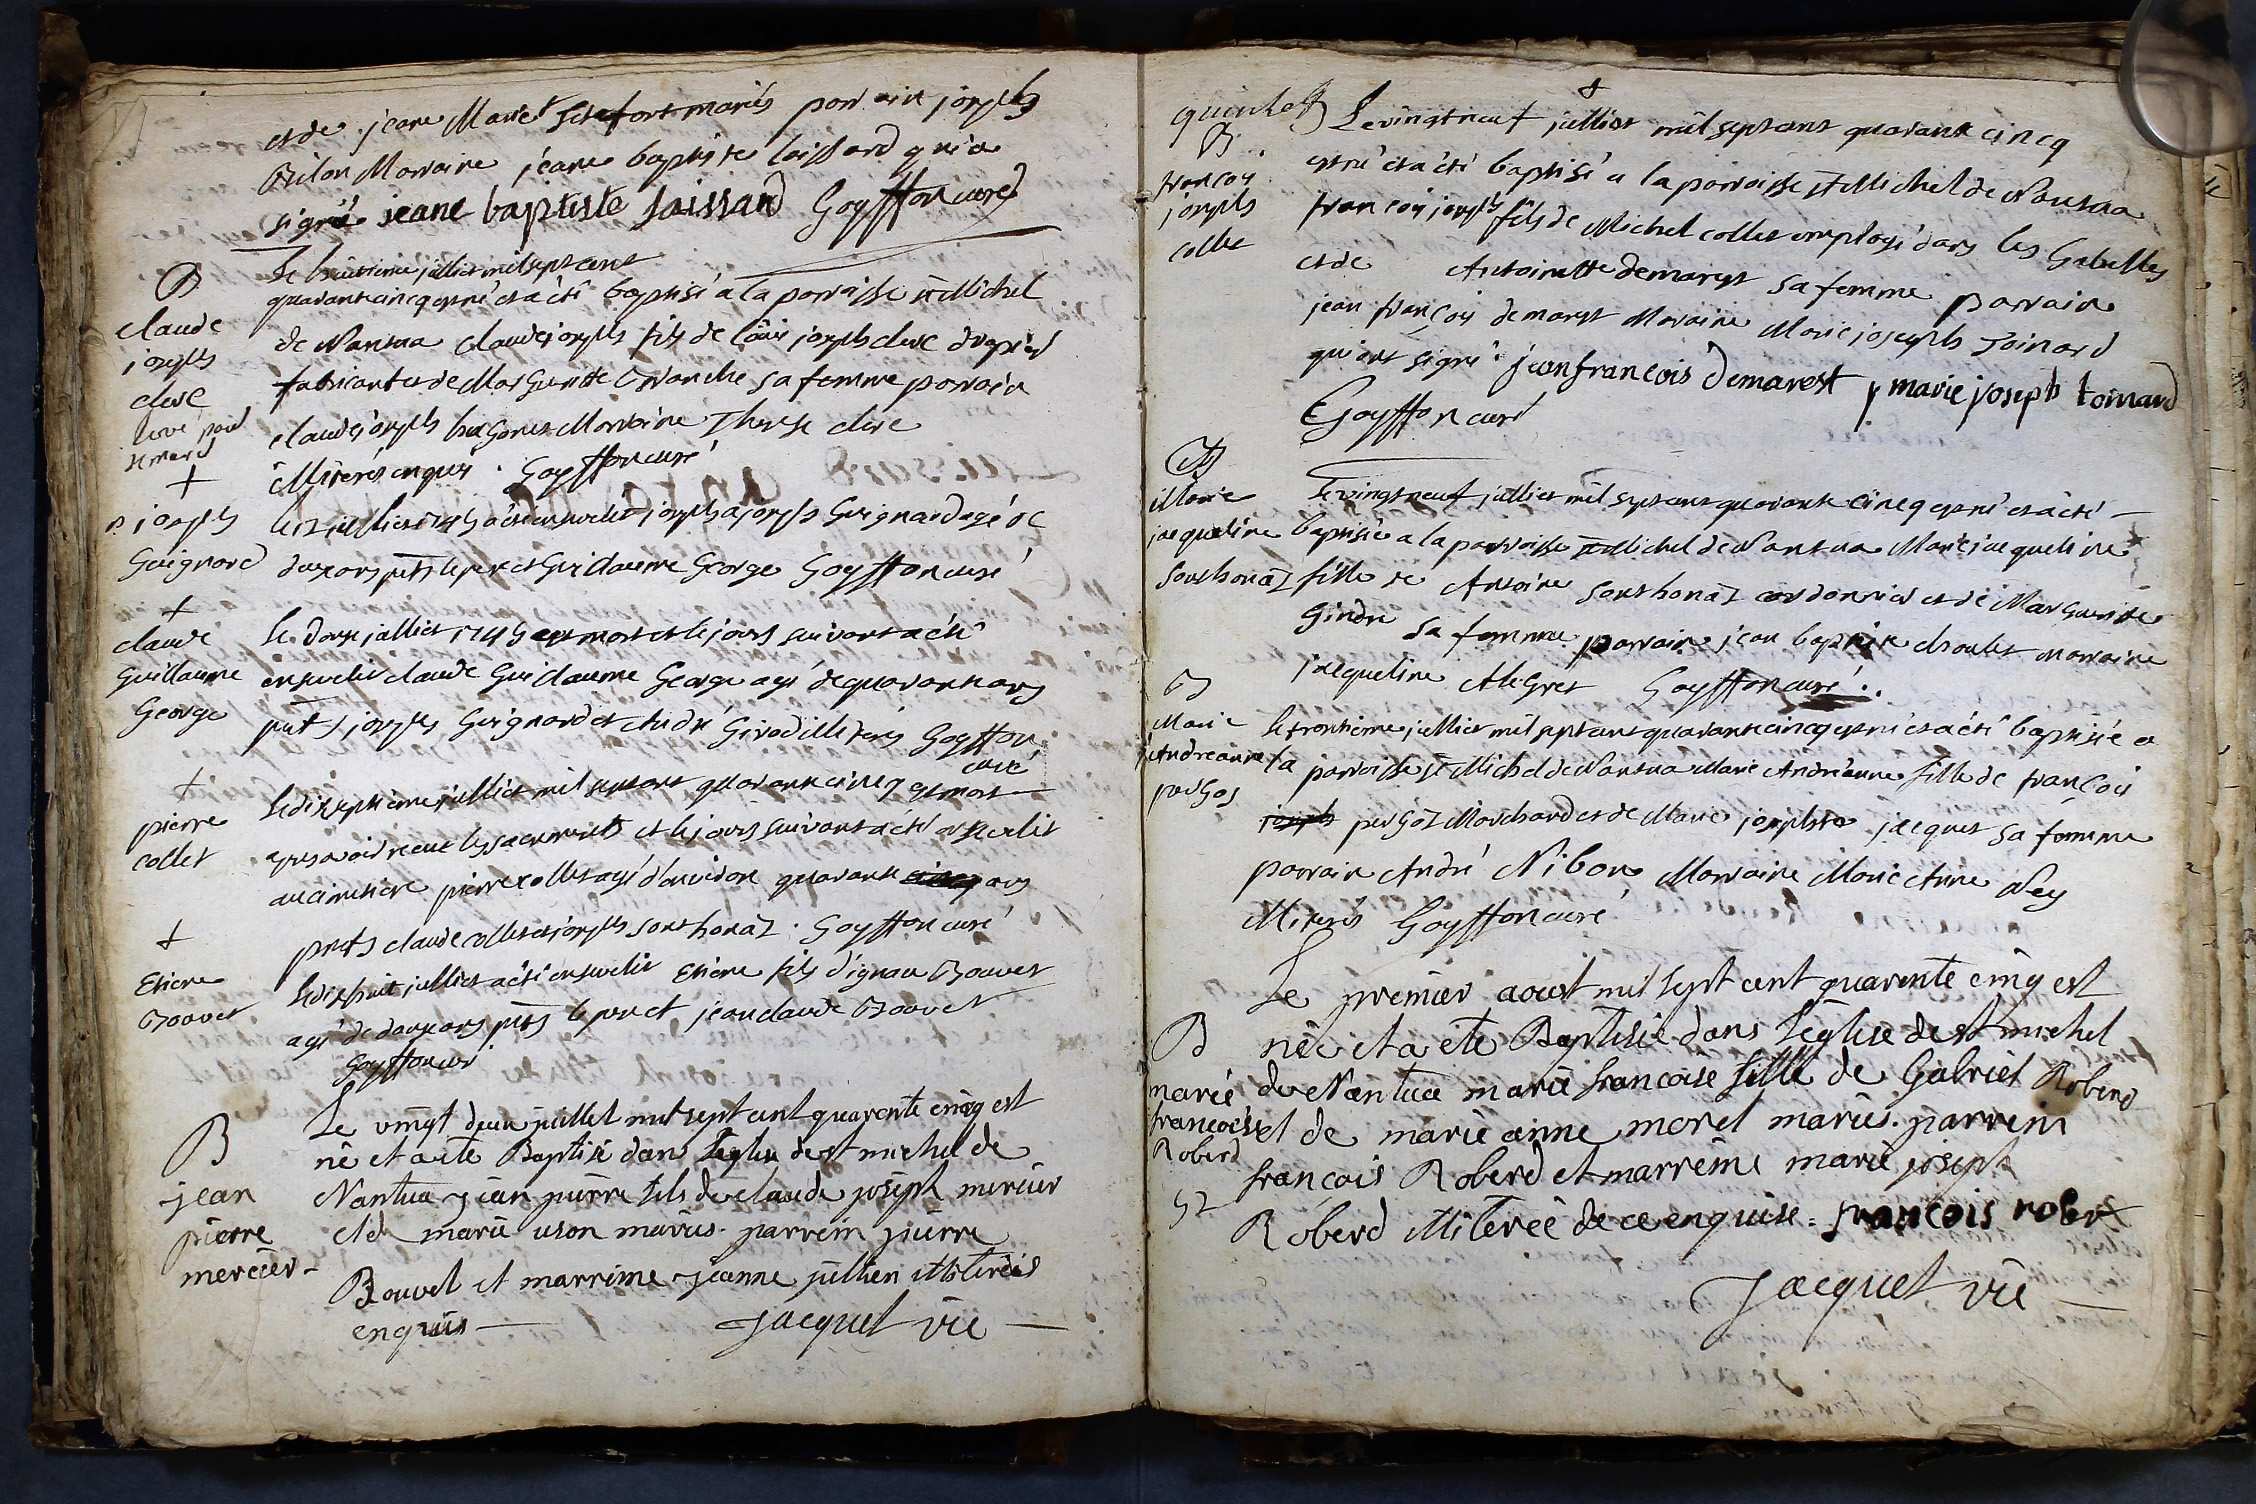 et de jeane Marie mariés parrain joseph
Bilon Marraine jeane baptiste laissard qui a
signé jeane baptiste laissard Goyffon curé
B
claude
joseph
clerc
Le huitieme julliet mil sept cent
quarante cinq est né et a été baptisé a la paroisse st Michel
de Nantua claude joseph fils de loüis joseph clerc drapier
fabricant et de Marguerite sa femme parrain
claude joseph hugonet Marraine Therese clerc
illiterés enquis . Goyffon curé
+
joseph
Guignard
le 12 julliet 1745 a été ensevelit joseph a joseph Guignard agé de
deux ans pnts le pere et Guillaume George Goyffon curé
+
claude
Guillaume
George
Le douze julliet 1745 est mort et le jours suivant a été
ensevelit claude Guillaume George agé de quarante ans
pnts joseph Guignard et André Girod illiterés Goyffon
curé
+
pierre
collet
Le dix septieme julliet mil sept cent quarante cinq est mort
apres avoir receut les sacrements et le jours suivant a été ensevelit
au cimetiere pierre collet agé d'environ quarante cinq ans
pnts claude collet et joseph Southonaz . Goyffon curé
+
Etiene
Bouvet
Le dix huit julliet a été ensevelit Etiene fils d'ignace Bouvet
agé de deux ans pnts le pere et jean claude Bouvet
Goyffon curé
B
jean
pierre
mercier
Le vingt deux juillet mil sept cent quarente cinq est
né et a été Baptisé dans l'eglise de st michel de
Nantua jean pierre fils de claude joseph mercier
et de marie uson mariés. parrein pierre
Bouvet et marreine jeanne jullien illiterés
enquis — jacquet vic —
B
francois
joseph
collet
+
Le vingt neuf julliet mil sept cent quarante cinq
est né et a été baptisé a la paroisse st Michel de Nantua
francois joseph fils de Michel collet employé dans les Gabelles
et de Antoinette demarest sa femme parrain
jean françois demarest Maraine Marie joseph Toinard
qui ont signé : jean francois demarest marie joseph toinard
Goyffon curé
B
Marie
jacqueline
Southonaz
Le vingt neuf julliet mil sept cent quarante cinq est né et a été
baptisée a la paroisse st Michel de Nantua Marie jacqueline
fille de Antoine Southonaz cordonnier et de Marguerite
Gindre sa femme parrain jean baptiste marraine
jacqueline Alegret Goyffon curé ..
B
Marie
Andreanne
pergos
Le trentieme julliet mil sept cent quarante cinq est né et a été baptisée a
la paroisse st Michel de Nantua Marie Andréanne fille de françois
joseph pergoz Marchand et de Marie josephte jacquet sa femme
parrain André Nibon Marraine Marie Anne Ney
illiterés Goyffon curé
B
marie
francoise
Roberd
52
Le premier aoust mil sept cent quarente cinq est
née et a eté Baptisée dans l'église de st michel
de Nantua marie francoise fille de Gabriel Roberd
et de marie anne morel mariés. parrein
françois Roberd et marreine marie joseph
Roberd illiterée de ce enquise = francois robert
Jacquet vic —